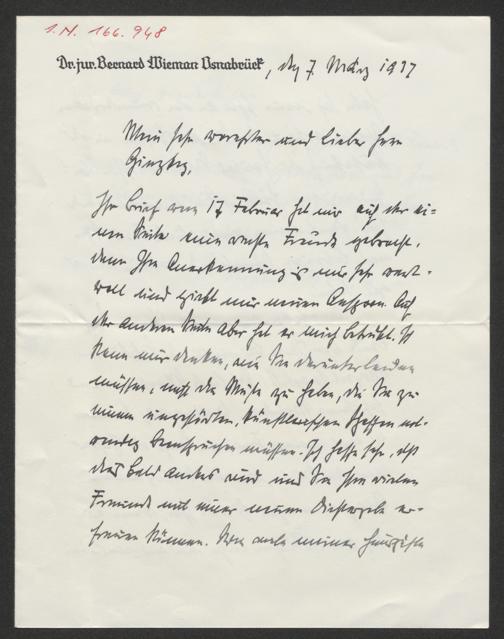 I. N. 166.948
Dr. jur. Bernard Wieman Osnabrück, den 7. März 1937
Mein sehr verehrter und lieber Herr
Ginzkey,
Ihr Brief vom 17 Februar hat mir auf der ei-
nen Seite eine rechte Freude gebracht,
denn Ihre Anerkennung ist mir sehr wert-
voll und giebt mir neuen Ansporn. Auf
der anderen Seite aber hat er mich betrübt. Ich
kann mir denken, wie Sie darunter leiden
müssen, nicht die Muße zu haben, die Sie zu
einem ungestörten, künstlerischen Schaffen not-
wendig beanspruchen müssen. Ich hoffe sehr, daß
das bald anders wird und Sie Ihre vielen
Freunde mit einer neuen Dichtergabe er-
freuen können. Von meiner